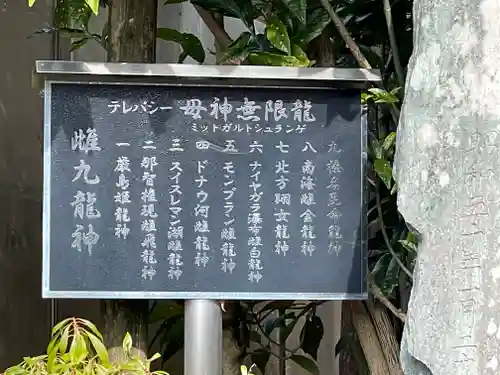 テレパシー 母神無限龍
ミットガルトシュランゲ
雌九龍神
一 嚴島姫龍神
二 那智権現雌飛龍神
三 スイスレマン湖雌龍神
四 ドナウ河雌龍神
五 モンブラン雌龍神
六 ナイヤガラ瀑布雌白龍神
七 北方翔女龍神
八 南海雌金龍神
九 龍神